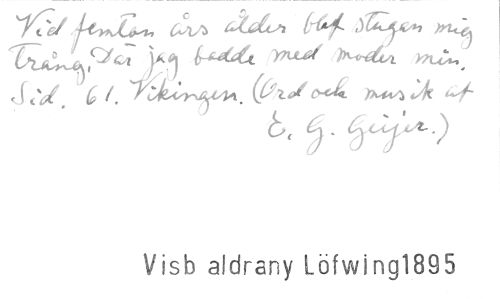 Vid femton års ålder blef stugan mig
trång, Där jag bodde med moder min.
Sid. 61. Vikingen. (Ord och musik af
E. G. Geijer.)
Visb aldrany Löfwing1895